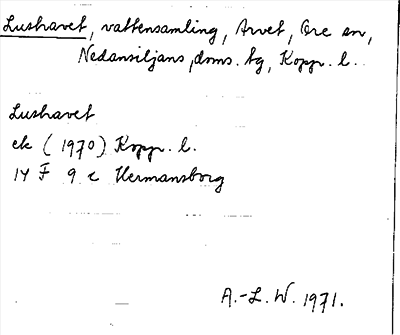 Lushavet, vattensamling, Arvet, Ore sn,
Nedansiljans doms. tg, Kopp. l.
Lushavet
ek (1970) Kopp. l.
14 F 9 c Hermansborg
A.-L. W. 1971.